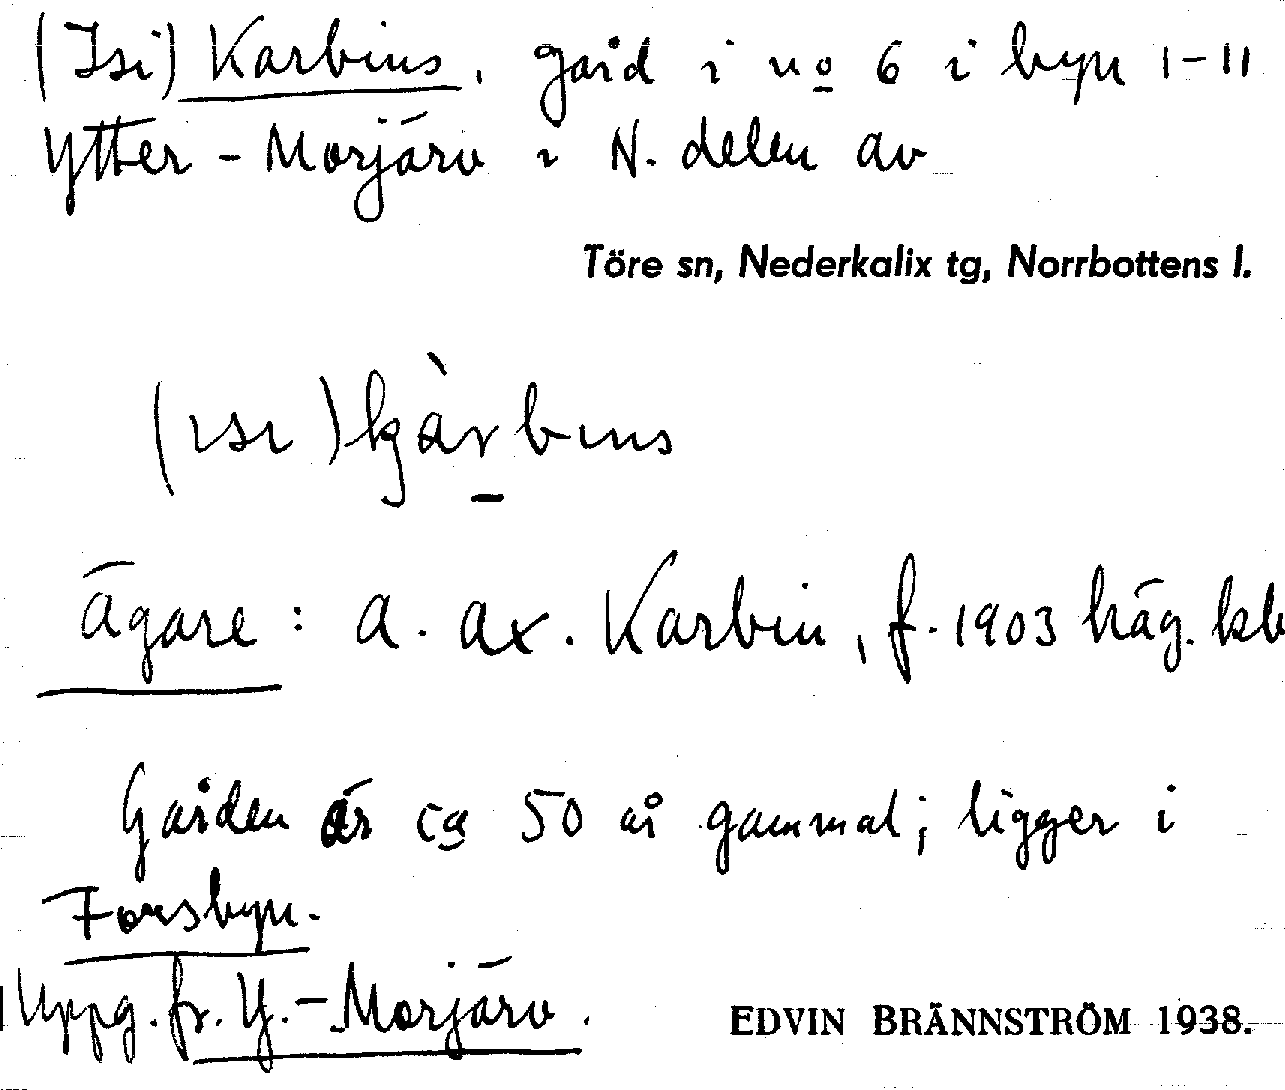 (Isi) Karbins, gård i no 6 i byn 1-11
Ytter-Morjärv i N. delen av
Töre sn, Nederkalix tg, Norrbottens l.
(ısı) kàrbıns
Ägare: A. Ax. Karbin, f. 1903 häg. kb
Gården är ca 50 år gammal; ligger i
Forsbyn.
Uppg. fr. Y.-Morjärv.
EDVIN BRÄNNSTRÖM 1938.